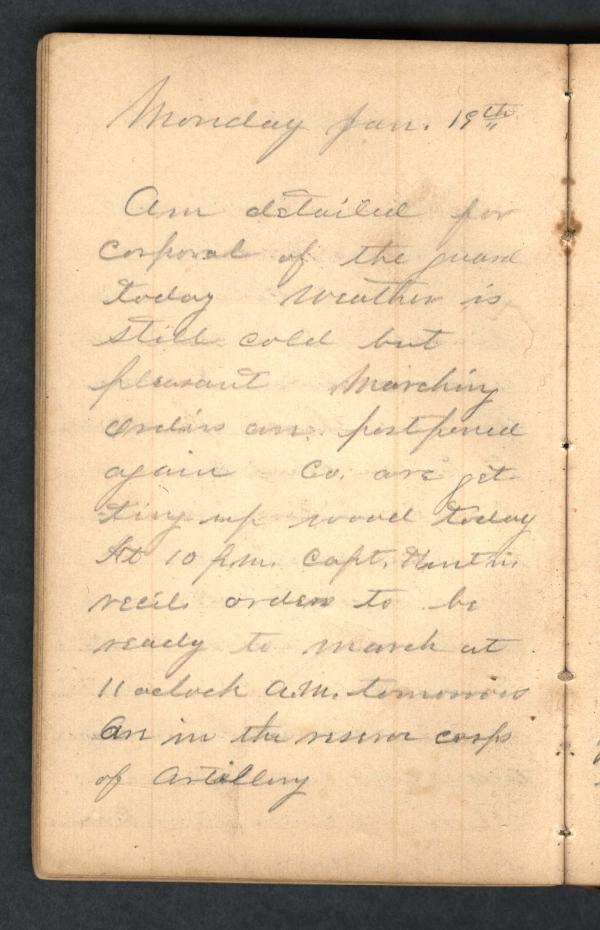 Monday Jan. 19th
Am detailed for
Corporal of the guard
today Weather is
still cold but
pleasant Marching
Orders are postponed
again Co. are get
ting up wood today
At 10 P.M. Capt.
recis orders to be
ready to march at
11 oclock A.M. tomorrow
Are in the reserve corps
of Artillery